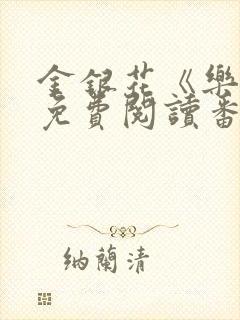 金銀花《樂
免費閱讀番
納蘭清